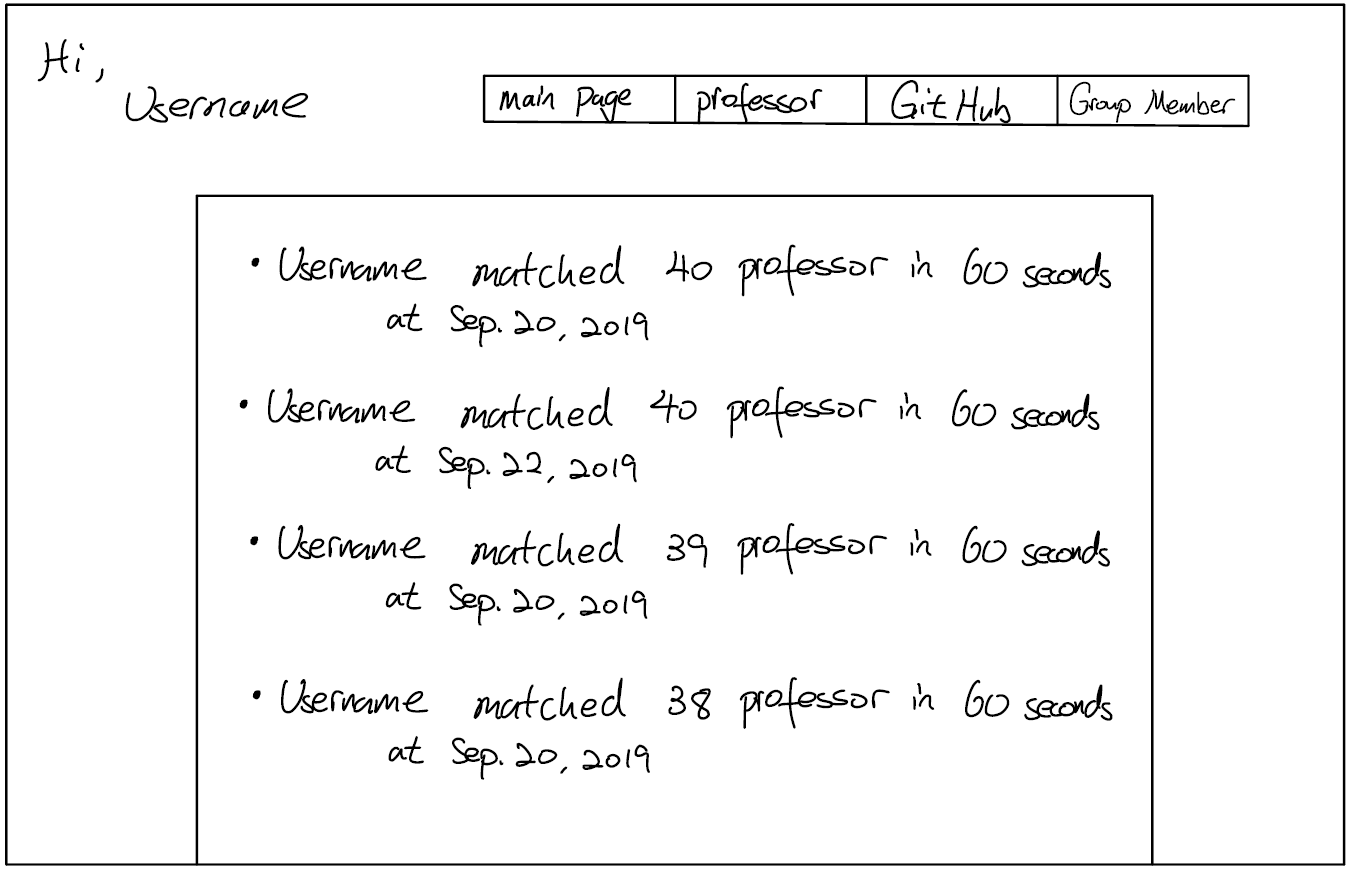 Hi,
Username
main page professor GitHub Group Member
• Username matched 40 professor in 60 seconds
at Sep. 20, 2019
• Username matched 40 professor in 60 seconds
at Sep. 22, 2019
• Username matched 39 professor in 60 seconds
at Sep. 20, 2019
• Username matched 38 professor in 60 seconds
at Sep. 20, 2019